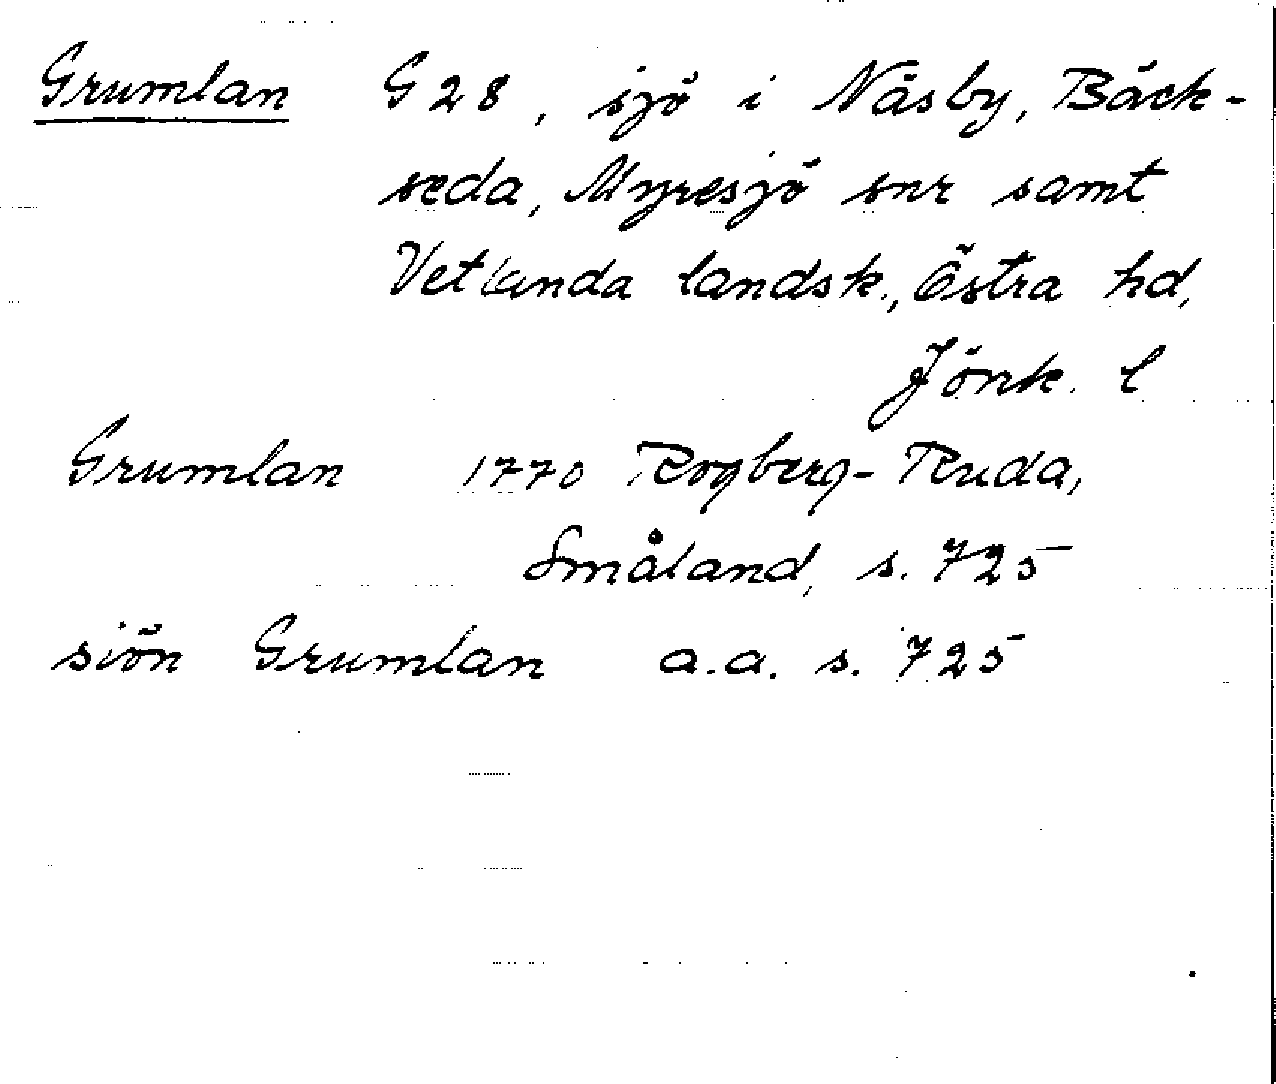 Grumlan G 28, sjö i Näsby, Bäck-
seda, Myresjö snr samt
Vetlanda landsk., Östra hd,
Jönk. l
Grumlan 1770 Rogberg-Ruda,
Småland, s. 725
siön Grumlan a.a. s. 725